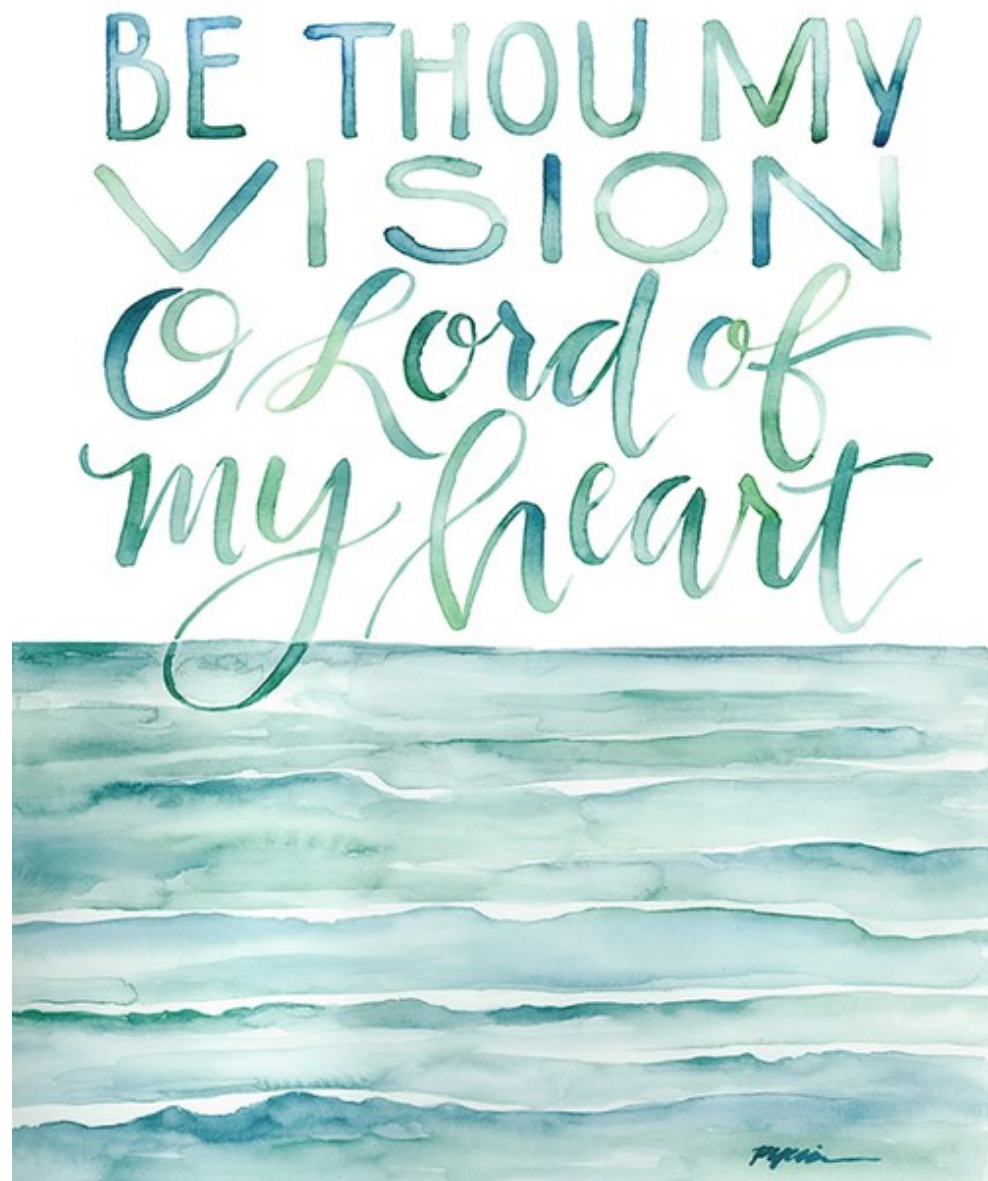 BE THOU MY
VISION
O Lord of
my heart